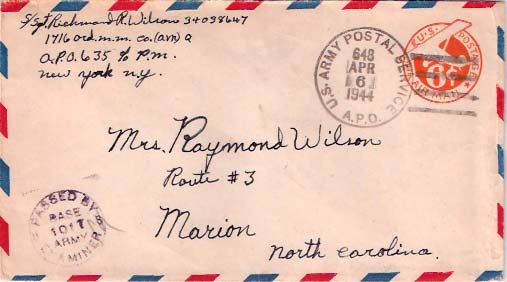 S/Sgt. Richmond R. Wilson 34098647
1716 Ord. m. m. co. (avn) Q
A.P.O. 635 % P.M.
new york n.y.
U.S. ARMY POSTAL SERVICE
648
APR
6
1944
A.P.O.
U.S. POSTAGE
6¢
AIR MAIL
Mrs. Raymond Wilson
Route #3
Marion
north carolina.
PASSED BY
BASE
ARMY
EXAMINER